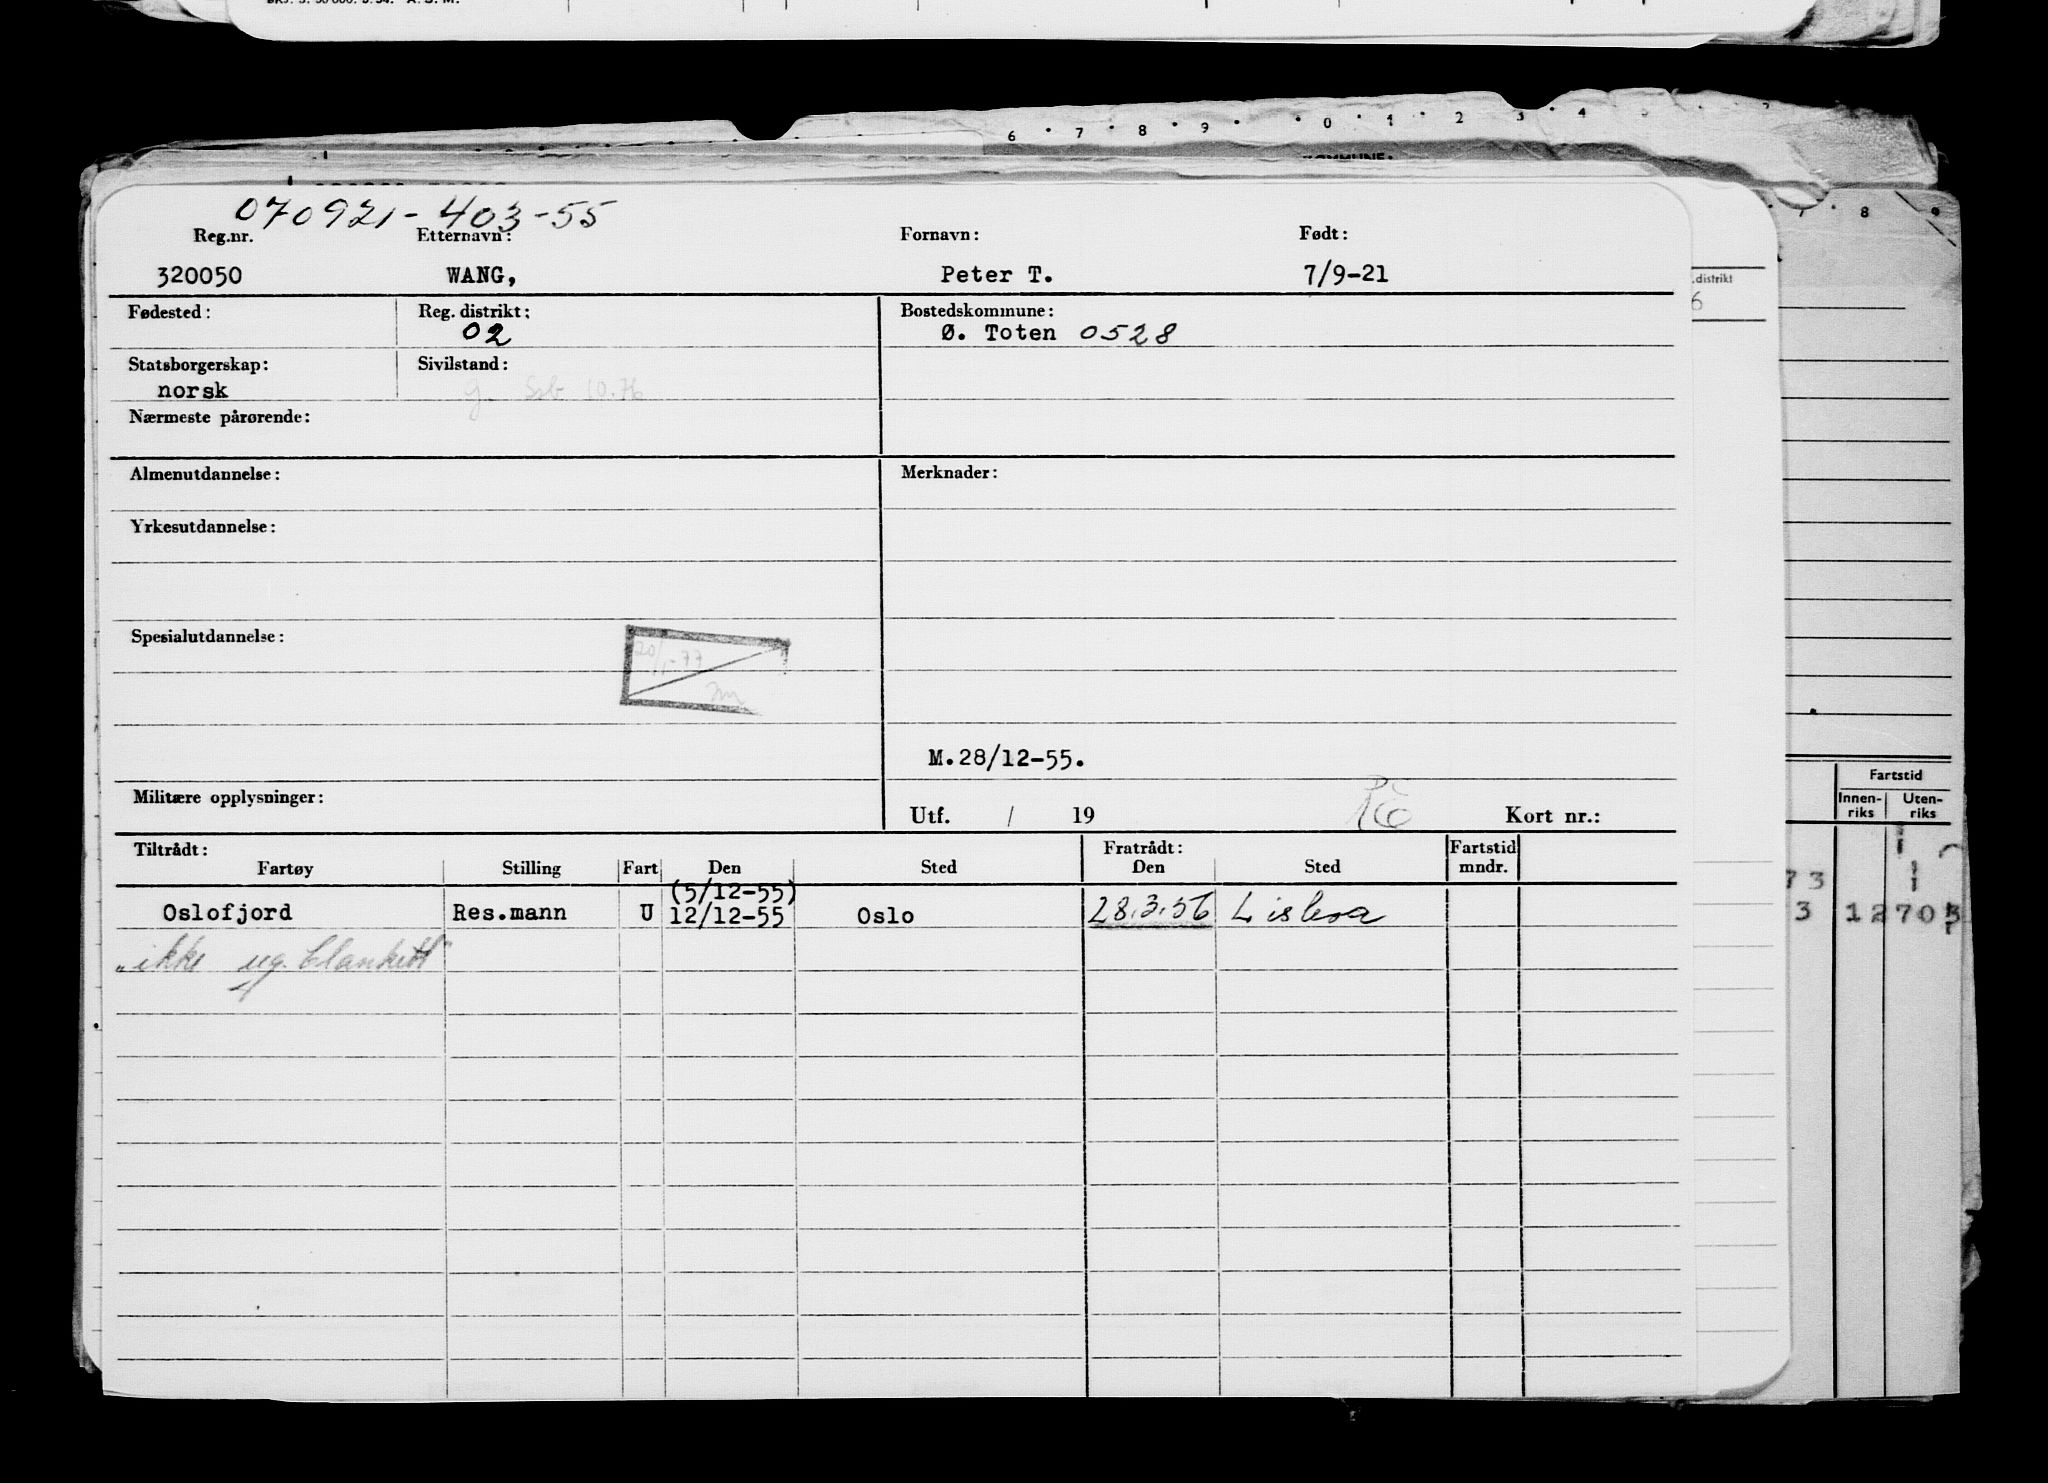 6 · 7 · 8 · 9 · · 0 · 1 · 2 3 · 4
070921-403-55
Reg.nr. Etternavn: Fornavn: Født:
320050 WANG, Peter T. 7/9-21
Fødested: Reg. distrikt: Bostedskommune:
02 Ø. Toten 0528
Statsborgerskap: Sivilstand:
norsk g. 10.76
Nærmeste pårørende:
Almenutdannelse: Merknader:
Yrkesutdannelse:
Spesialutdannelse:
20/1-77
M.28/12-55.
Militære opplysninger:
Utf. / 19 Kort nr.:
Tiltrådt: Fratrådt: Fartstid
Fartøy Stilling Fart Den Sted Den Sted mndr.
(5/12-55)
Oslofjord Res.mann U 12/12-55 Oslo 28.3.56 Lisboa
"ikke reg. blankett"
7 8
.distrikt
6
Fartstid
Innen- Uten-
riks riks
73
3 12703